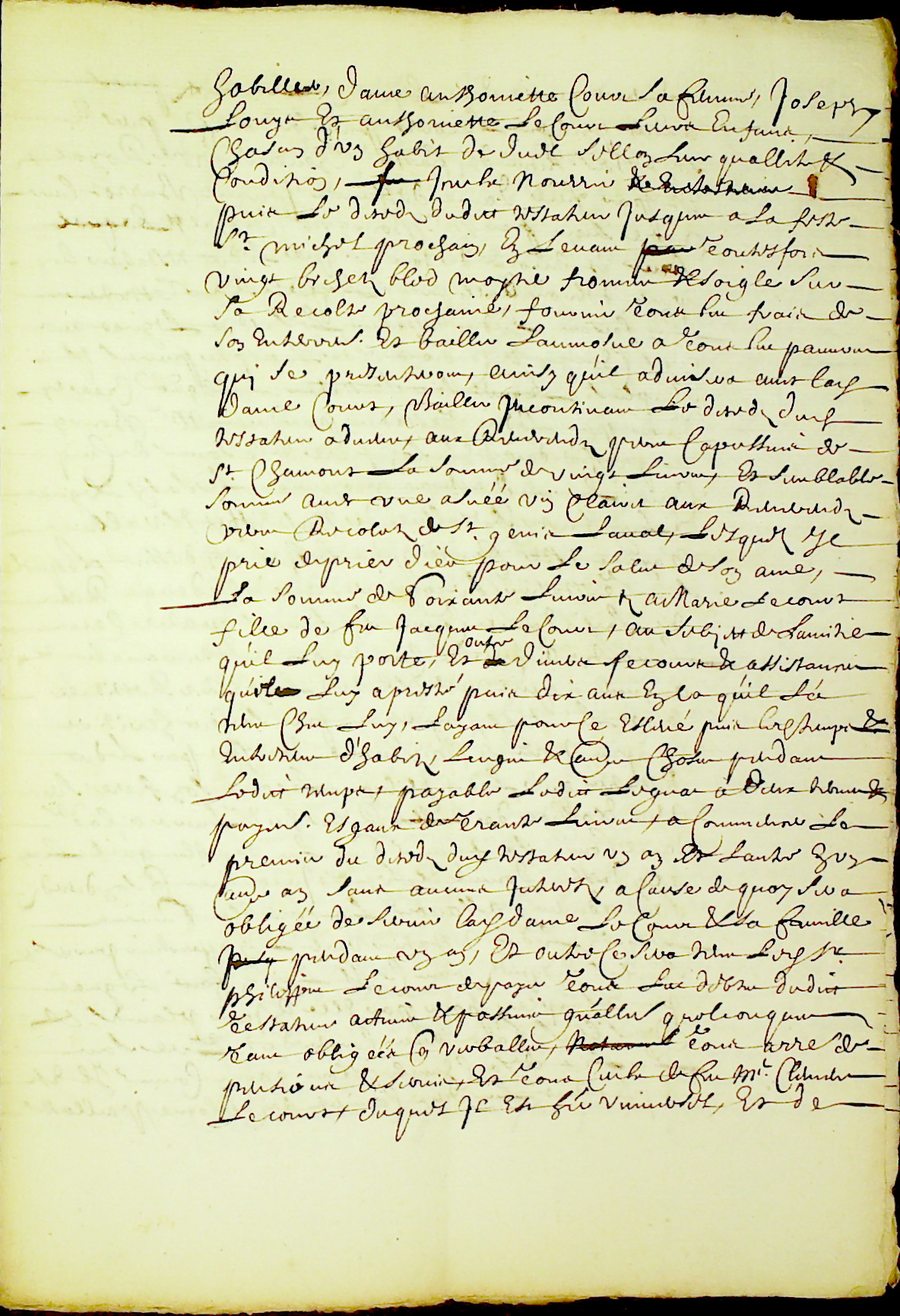 habiller, dame anthoinette Court sa femme, Joseph
Louys Et anthoinette LeCourt Leurs Enfans,
Chascun d'un habit de dueil sellon Leur quallité &
Condition, Iceulx Nourrir & Entretenir
puis Le deceds dudict testateur Jusques a La feste
St. michel prochain, En Levant toutesfois
vingt bichetz bled moytié froment & soigle sur
sa Recolte prochaine, fournir tous les frais de
son Enterrement. Et bailler Laumosne a tous les pauvres
qui se presenteront, ainsy qu'il advisera avec lad.
dame Court, Bailler Incontinant Le deceds dud.
testateur advenu, aux Reverendz peres Capussins de
St. Chamont La somme de vingt Livres, Et semblable
somme avec une asnéé vin Clairet aux Reverendz
peres Recoletz de St. genis Laval, Lesquelz Il
prie de prier dieu pour Le salut de son ame,
La somme de soixante Livres a Marie Lecourt
fille de feu Jacques LeCourt, au subject de Lamitié
qu'il Luy porte, Et outre divers secours & assistances
qu'il Luy a presté puis dix ans En ça qu'il L'a
tenu Chez Luy, Layant pour ce Eslevé puis led. temps &
Entretenu d'habitz, Linges & autres Choses pendant
Ledict temps, payable Ledict Legat a deux termes &
payes. Esgaux de trante Livres, a Commencer Le
premier du deceds dud. testateur un an Et Lautre En un
autre an sans aucuns Interestz, a Cause de quoy sera
obligéé de servir lad. dame LeCourt & sa famille
pendant un an, Et outre ce sera tenu Led. Sr.
philippe Lecourt de payer tous Les debtes dudict
testateur actives & passives qu'elles quelconques
tant obligéés que verballes, tous arres de
pentions & servis, Et tous Ceulx de feu Mr. Claude
Lecourt, duquel Il Est heritier universel, Et de